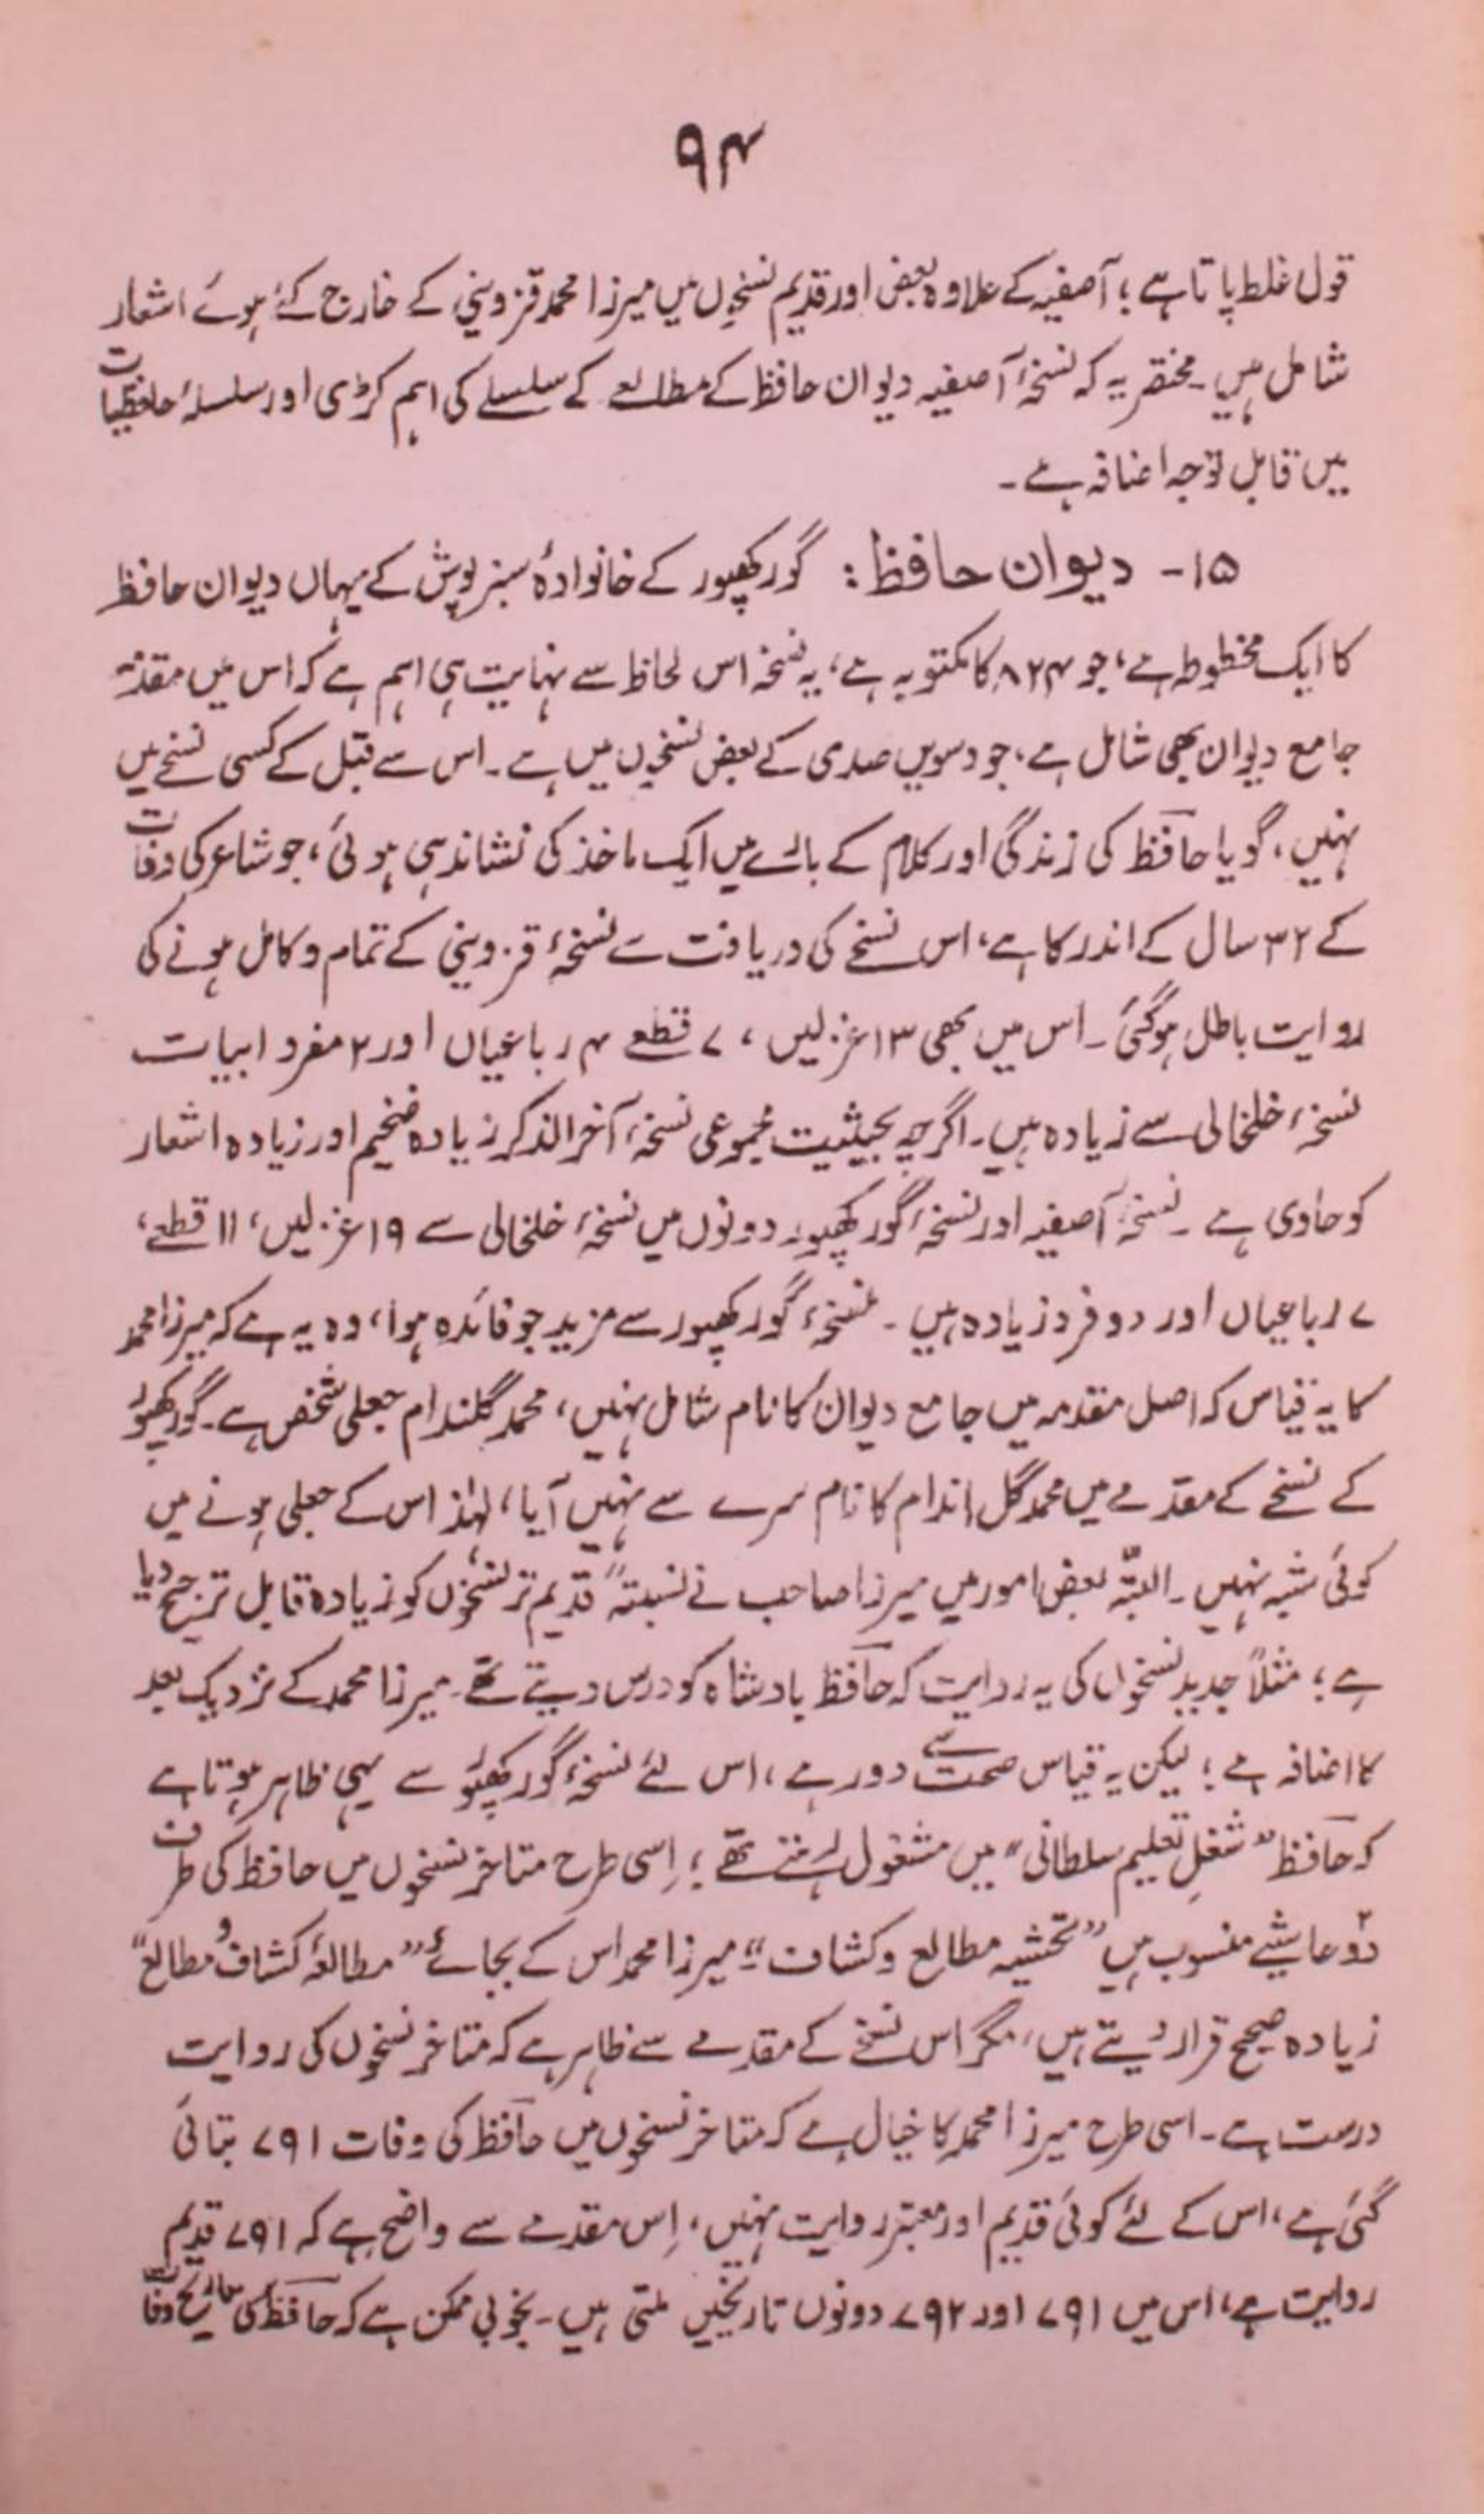 ۹۴
قول غلط پاتا ہے؛ آصفیہ کے علاوہ بعض اور قدیم نسخوں میں میرزا محمد قزوینی کے خارج کئے ہوئے اشعار
شامل ہیں۔ مختصر یہ کہ نسخۂ آصفیہ دیوان حافظ کے مطالعے کے سلسلے کی اہم کڑی اور سلسلۂ حافظیات
میں قابل توجہ اضافہ ہے۔
۱۵- دیوان حافظ: گورکھپور کے خانوادۂ سبزپوش کے یہاں دیوان حافظ
کا ایک مخطوطہ ہے، جو ۸۲۴ کا مکتوبہ ہے، یہ نسخہ اس لحاظ سے نہایت ہی اہم ہے کہ اس میں مقدمۂ
جامع دیوان بھی شامل ہے، جو دسویں صدی کے بعض نسخوں میں ہے۔ اس سے قبل کے کسی نسخے میں
نہیں، گویا حافظ کی زندگی اور کلام کے بارے میں ایک ماخذ کی نشاندہی ہوئی، جو شاعر کی وفات
کے ۳۲ سال کے اندر کا ہے، اس نسخے کی دریافت سے نسخۂ قزوینی کے تمام و کامل ہونے کی
روایت باطل ہوگئی۔ اس میں بھی ۱۳ غزلیں، ۷ قطعے ۴ رباعیاں اور ۲ مفرد ابیات
نسخۂ خلخالی سے زیادہ ہیں۔ اگرچہ بحیثیت مجموعی نسخۂ آخر الذکر زیادہ ضخیم اور زیادہ اشعار
کو حاوی ہے۔ نسخۂ آصفیہ اور نسخۂ گورکھپور دونوں میں نسخۂ خلخالی سے ۱۹ غزلیں، ۱۱ قطعے،
۷ رباعیاں اور دو فرد زیادہ ہیں۔ نسخۂ گورکھپور سے مزید جو فائدہ ہوا، وہ یہ ہے کہ میرزا محمد
کا یہ قیاس کہ اصل مقدمہ میں جامع دیوان کا نام شامل نہیں، محمد گلندام جعلی شخص ہے۔ گورکھپور
کے نسخے کے مقدمے میں محمد گل اندام کا نام سرے سے نہیں آیا، لہٰذا اس کے جعلی ہونے میں
کوئی شبہ نہیں۔ البتّہ بعض امور میں میرزا صاحب نے نسبتہً قدیم تر نسخوں کو زیادہ قابل ترجیح دیا
ہے؛ مثلاً جدید نسخوں کی یہ روایت کہ حافظ بادشاہ کو درس دیتے تھے۔ میرزا محمد کے نزدیک بعد
کا اضافہ ہے؛ لیکن یہ قیاس صحت سے دور ہے، اس لئے نسخۂ گورکھپور سے یہی ظاہر ہوتا ہے
کہ حافظ "شغلِ تعلیم سلطانی" میں مشغول رہتے تھے؛ اِسی طرح متاخر نسخوں میں حافظ کی طرف
دو حاشیے منسوب ہیں "تحشیہ مطالع و کشاف"؛ میرزا محمد اس کے بجائے "مطالعۂ کشاف و مطالع"
زیادہ صحیح قرار دیتے ہیں، مگر اس نسخے کے مقدمے سے ظاہر ہے کہ متاخر نسخوں کی روایت
درست ہے۔ اسی طرح میرزا محمد کا خیال ہے کہ متاخر نسخوں میں حافظ کی وفات ۷۹۱ بتائی
گئی ہے، اس کے لئے کوئی قدیم اور معتبر روایت نہیں، اِس مقدمے سے واضح ہے کہ ۷۹۱ قدیم
روایت ہے، اس میں ۷۹۱ اور ۷۹۲ دونوں تاریخیں ملتی ہیں۔ بخوبی ممکن ہے کہ حافظ کی تاریخ وفات